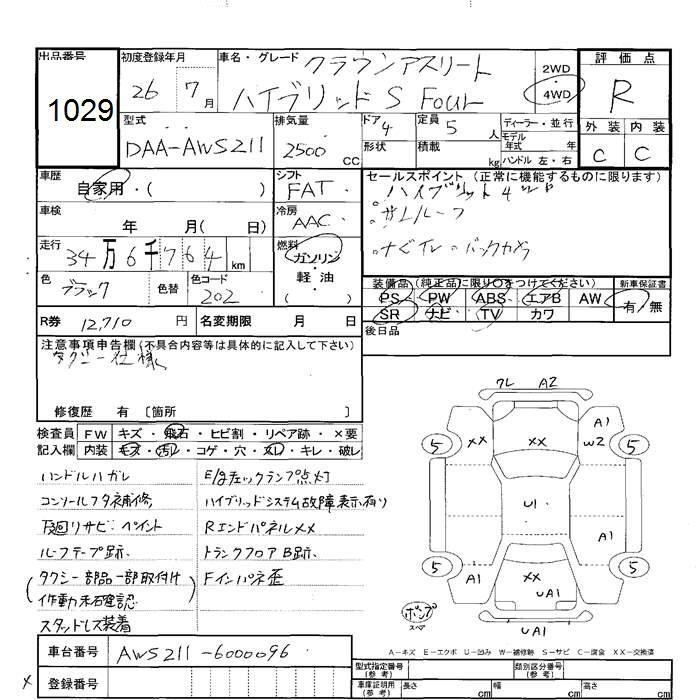 出品番号
1029
初度登録年月
26 7月
車名・グレード
クラウンアスリート
ハイブリッドS Four
2WD
4WD
評価点
R
外装 内装
C C
型式
DAA-AWS211
排気量
2500 CC
ドア 4
形状
定員 5 人
積載 kg
ディーラー・並行
モデル年式 年
ハンドル 左・右
車歴
自家用・( )
シフト
FAT
セールスポイント(正常に機能するものに限ります)
ハイブリット4WD
サンルーフ
ナビTV・バックカメラ
車検
年 月( 日)
冷房
AAC
走行
34万6千764 km
燃料
ガソリン
軽油
( )
色
ブラック
色替
色コード
202
装備品(純正品に限り○をつけてください)
新車保証書
PS PW ABS エアB AW
SR ナビ TV カワ
有・無
R券 12,710 円
名変期限 月 日
後日品
注意事項申告欄(不具合内容等は具体的に記入して下さい)
タクシー仕様
修復歴 有 〔箇所
検査員記入欄
FW キズ・飛石・ヒビ割・リペア跡・×要
内装 キズ・汚レ・コゲ・穴・スレ・キレ・破レ
ハンドルハガレ
コンソールフタ補修
下廻りサビ・ペイント
ルーフテープ跡
タクシー部品一部取付け
作動未確認
スタッドレス装着
E/gチェックランプ点灯
ハイブリッドシステム故障表示有り
RエンドパネルXX
トランクフロアB跡
Fインパネ歪
ワレ A2
XX
XX
A1
W2
5
5
U1
A1
5
5
A1
XX
UA1
UA1
パンク
スペア
A-キズ E-エクボ U-凹み W-補修跡 S-サビ C-腐食 XX-交換済
車台番号 AWS211-6000096
登録番号
型式指定番号(参考)
類別区分番号(参考)
車庫証明用(参考)
長さ cm
幅 cm
高さ cm